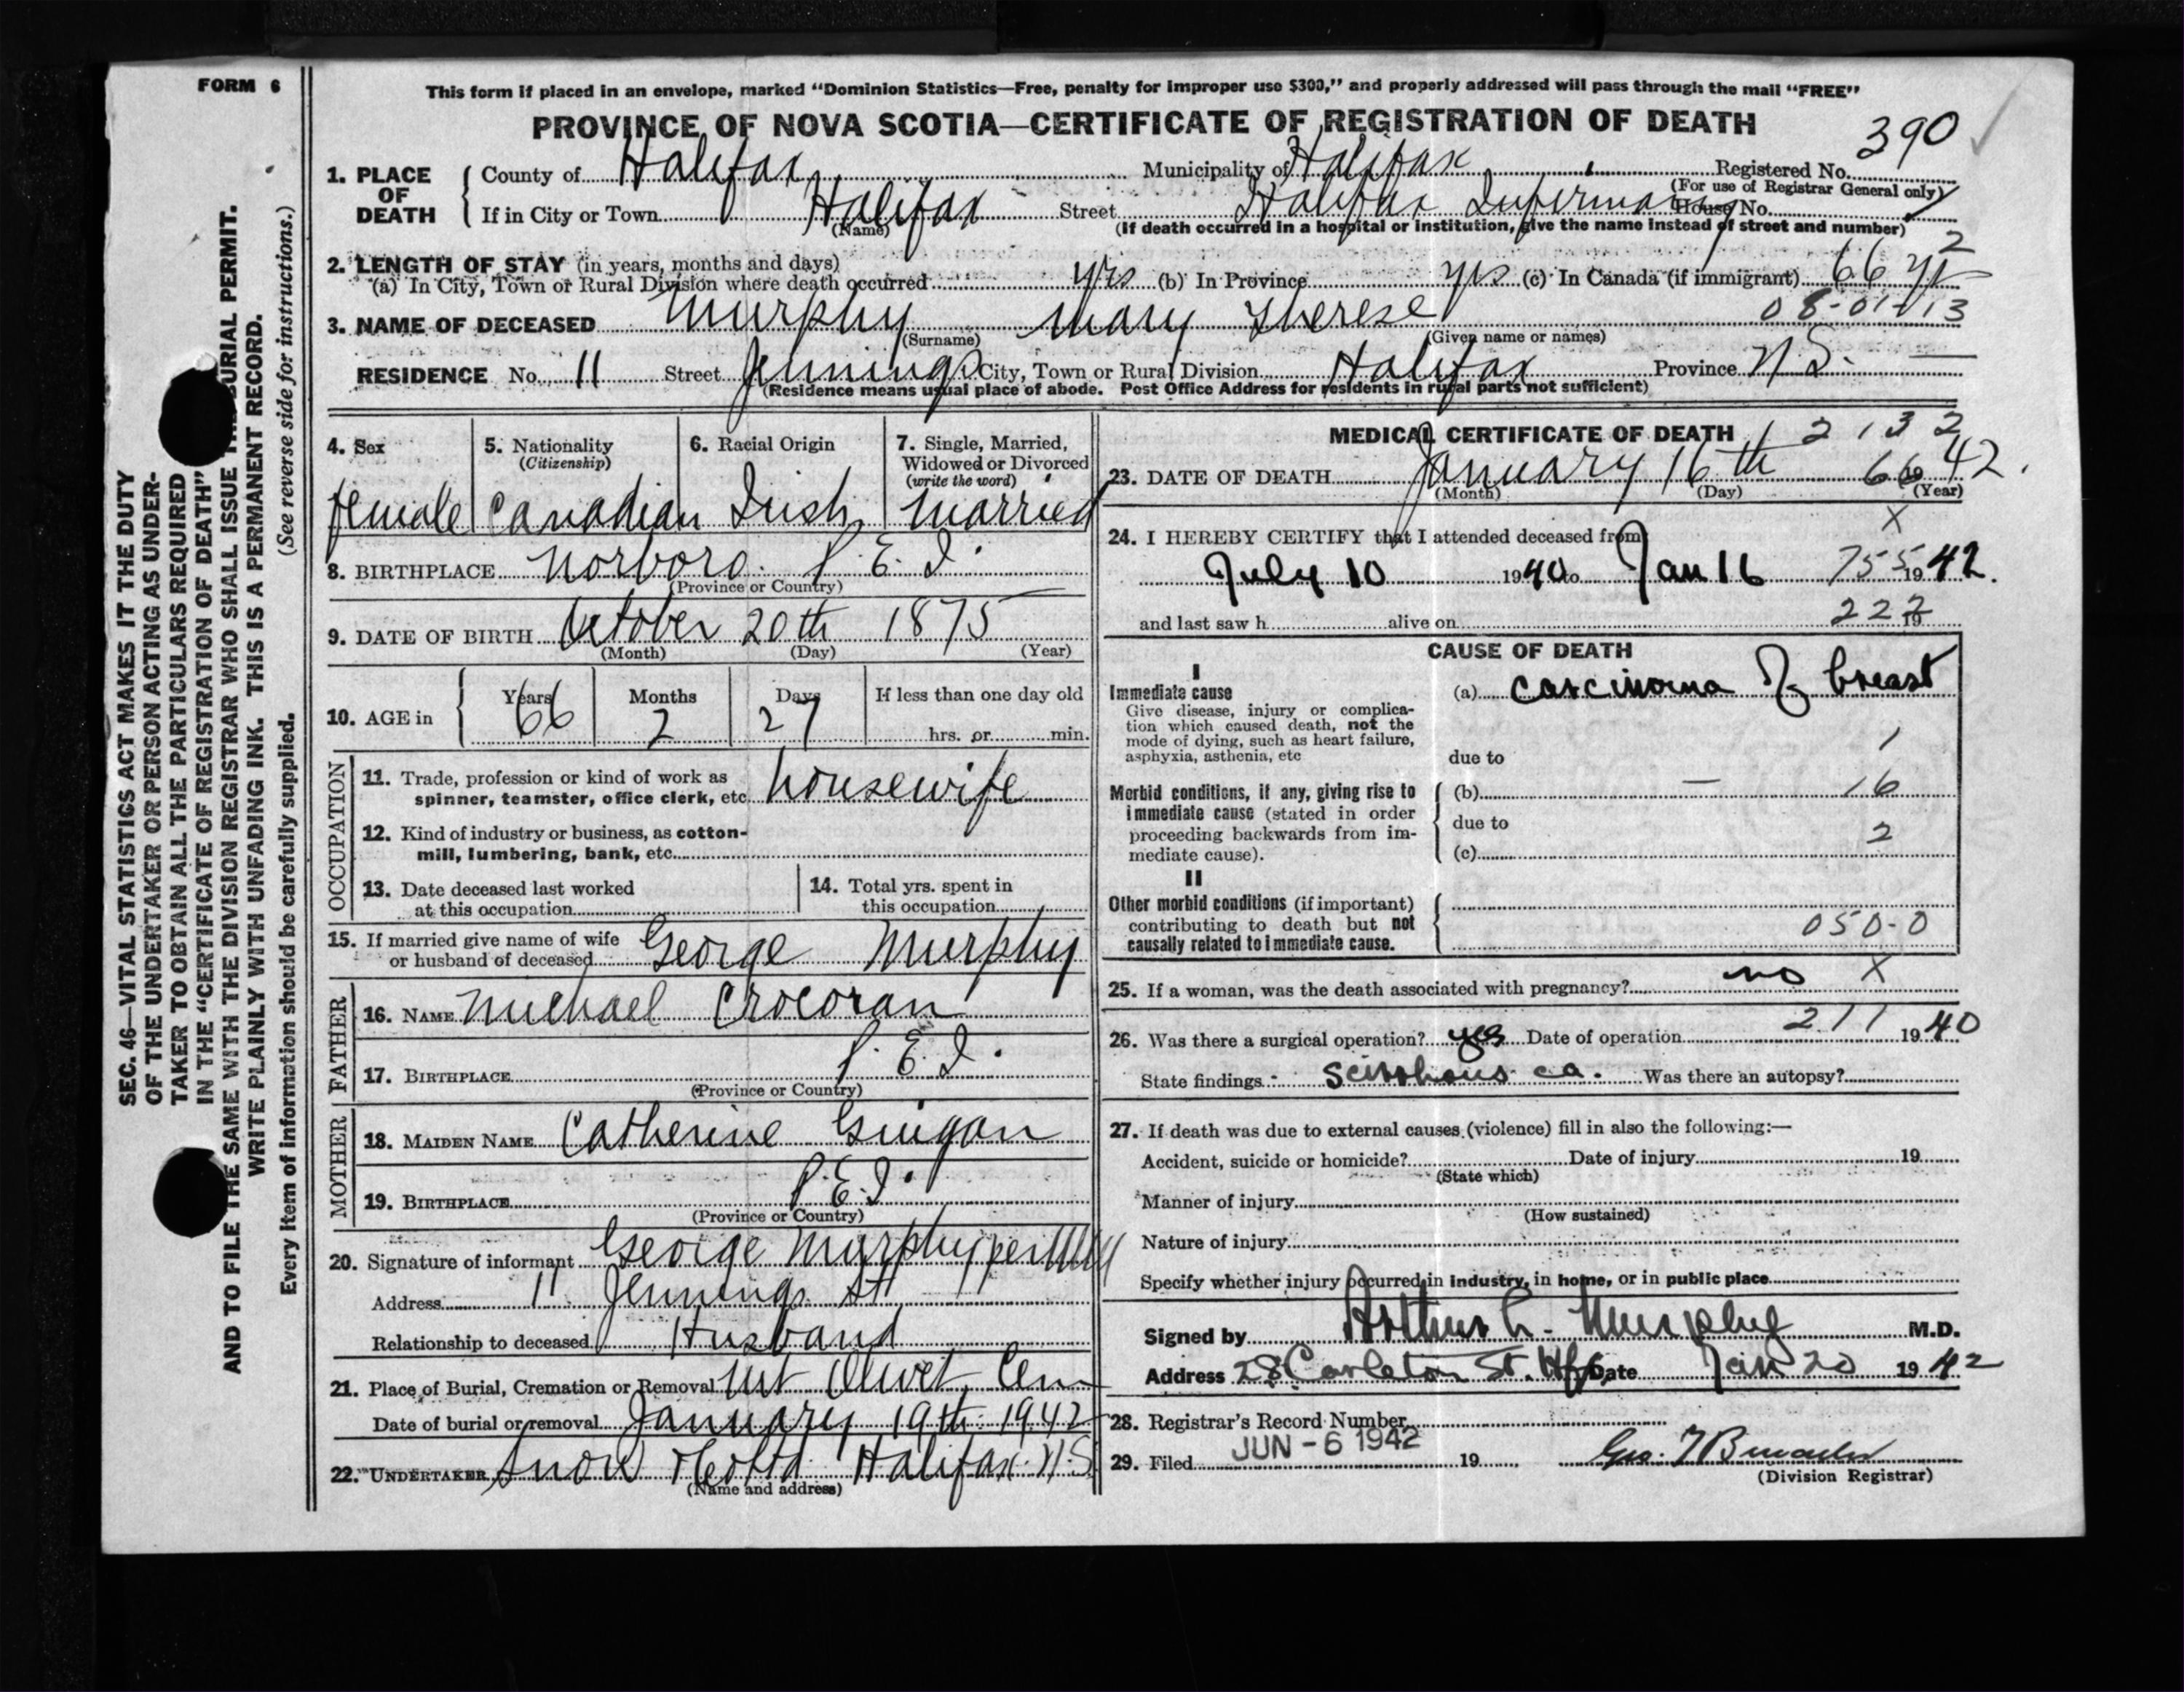 FORM 6
This form if placed in an envelope, marked "Dominion Statistics—Free, penalty for improper use $300," and properly addressed will pass through the mail "FREE"
PROVINCE OF NOVA SCOTIA—CERTIFICATE OF REGISTRATION OF DEATH
390
1. PLACE OF DEATH
County of Halifax Municipality of Halifax Registered No.
(For use of Registrar General only)
If in City or Town Halifax Street Halifax Infirmary House No.
(Name) (If death occurred in a hospital or institution, give the name instead of street and number)
2. LENGTH OF STAY (in years, months and days) 2
(a) In City, Town or Rural Division where death occurred yrs (b) In Province yrs (c) In Canada (if immigrant) 66 yr
3. NAME OF DECEASED Murphy Mary Therese 08-01-13
(Surname) (Given name or names)
RESIDENCE No. 11 Street Jennings City, Town or Rural Division Halifax Province N.S. —
(Residence means usual place of abode. Post Office Address for residents in rural parts not sufficient)
4. Sex 5. Nationality (Citizenship) 6. Racial Origin 7. Single, Married, Widowed or Divorced (write the word)
female Canadian Irish married
8. BIRTHPLACE Norboro. P. E. I.
(Province or Country)
9. DATE OF BIRTH October 20th 1875
(Month) (Day) (Year)
10. AGE in Years Months Days If less than one day old
66 2 27 hrs. or min.
OCCUPATION
11. Trade, profession or kind of work as
spinner, teamster, office clerk, etc. housewife
12. Kind of industry or business, as cotton-
mill, lumbering, bank, etc.
13. Date deceased last worked
at this occupation
14. Total yrs. spent in
this occupation
15. If married give name of wife
or husband of deceased George Murphy
FATHER
16. NAME Michael Crocoran
17. BIRTHPLACE P. E. I.
(Province or Country)
MOTHER
18. MAIDEN NAME Catherine
19. BIRTHPLACE P. E. I.
(Province or Country)
20. Signature of informant George Murphy per
Address 11 Jennings St
Relationship to deceased Husband
21. Place of Burial, Cremation or Removal Mt Olivet Cem
Date of burial or removal January 19th 1942
22. UNDERTAKER Snow Halifax. N.S.
(Name and address)
MEDICAL CERTIFICATE OF DEATH 12132
23. DATE OF DEATH January 16th 66 19 42.
(Month) (Day) (Year)
X
24. I HEREBY CERTIFY that I attended deceased from
July 10 1940 to Jan 16 755 19 42.
and last saw h alive on 222 19
CAUSE OF DEATH
I
Immediate cause
Give disease, injury or complica-
tion which caused death, not the
mode of dying, such as heart failure,
asphyxia, asthenia, etc
(a) Carcinoma of breast
due to 1
Morbid conditions, if any, giving rise to
immediate cause (stated in order
proceeding backwards from im-
mediate cause).
(b) — 16
due to
2
(c)
II
Other morbid conditions (if important)
contributing to death but not
causally related to immediate cause.
050-0
25. If a woman, was the death associated with pregnancy? no X
26. Was there a surgical operation? yes Date of operation 211 19 40
State findings scirrhous ca. Was there an autopsy?
27. If death was due to external causes (violence) fill in also the following:—
Accident, suicide or homicide? Date of injury 19
(State which)
Manner of injury
(How sustained)
Nature of injury
Specify whether injury occurred in industry, in home, or in public place
Signed by Arthur L. Murphy M.D.
Address 28 Carleton St. Hfx Date Jan 20 1942
28. Registrar's Record Number
29. Filed JUN - 6 1942 19 Geo.
(Division Registrar)
SEC. 46—VITAL STATISTICS ACT MAKES IT THE DUTY
OF THE UNDERTAKER OR PERSON ACTING AS UNDER-
TAKER TO OBTAIN ALL THE PARTICULARS REQUIRED
IN THE "CERTIFICATE OF REGISTRATION OF DEATH"
AND TO FILE THE SAME WITH THE DIVISION REGISTRAR WHO SHALL ISSUE BURIAL PERMIT.
WRITE PLAINLY WITH UNFADING INK. THIS IS A PERMANENT RECORD.
Every item of information should be carefully supplied. (See reverse side for instructions.)